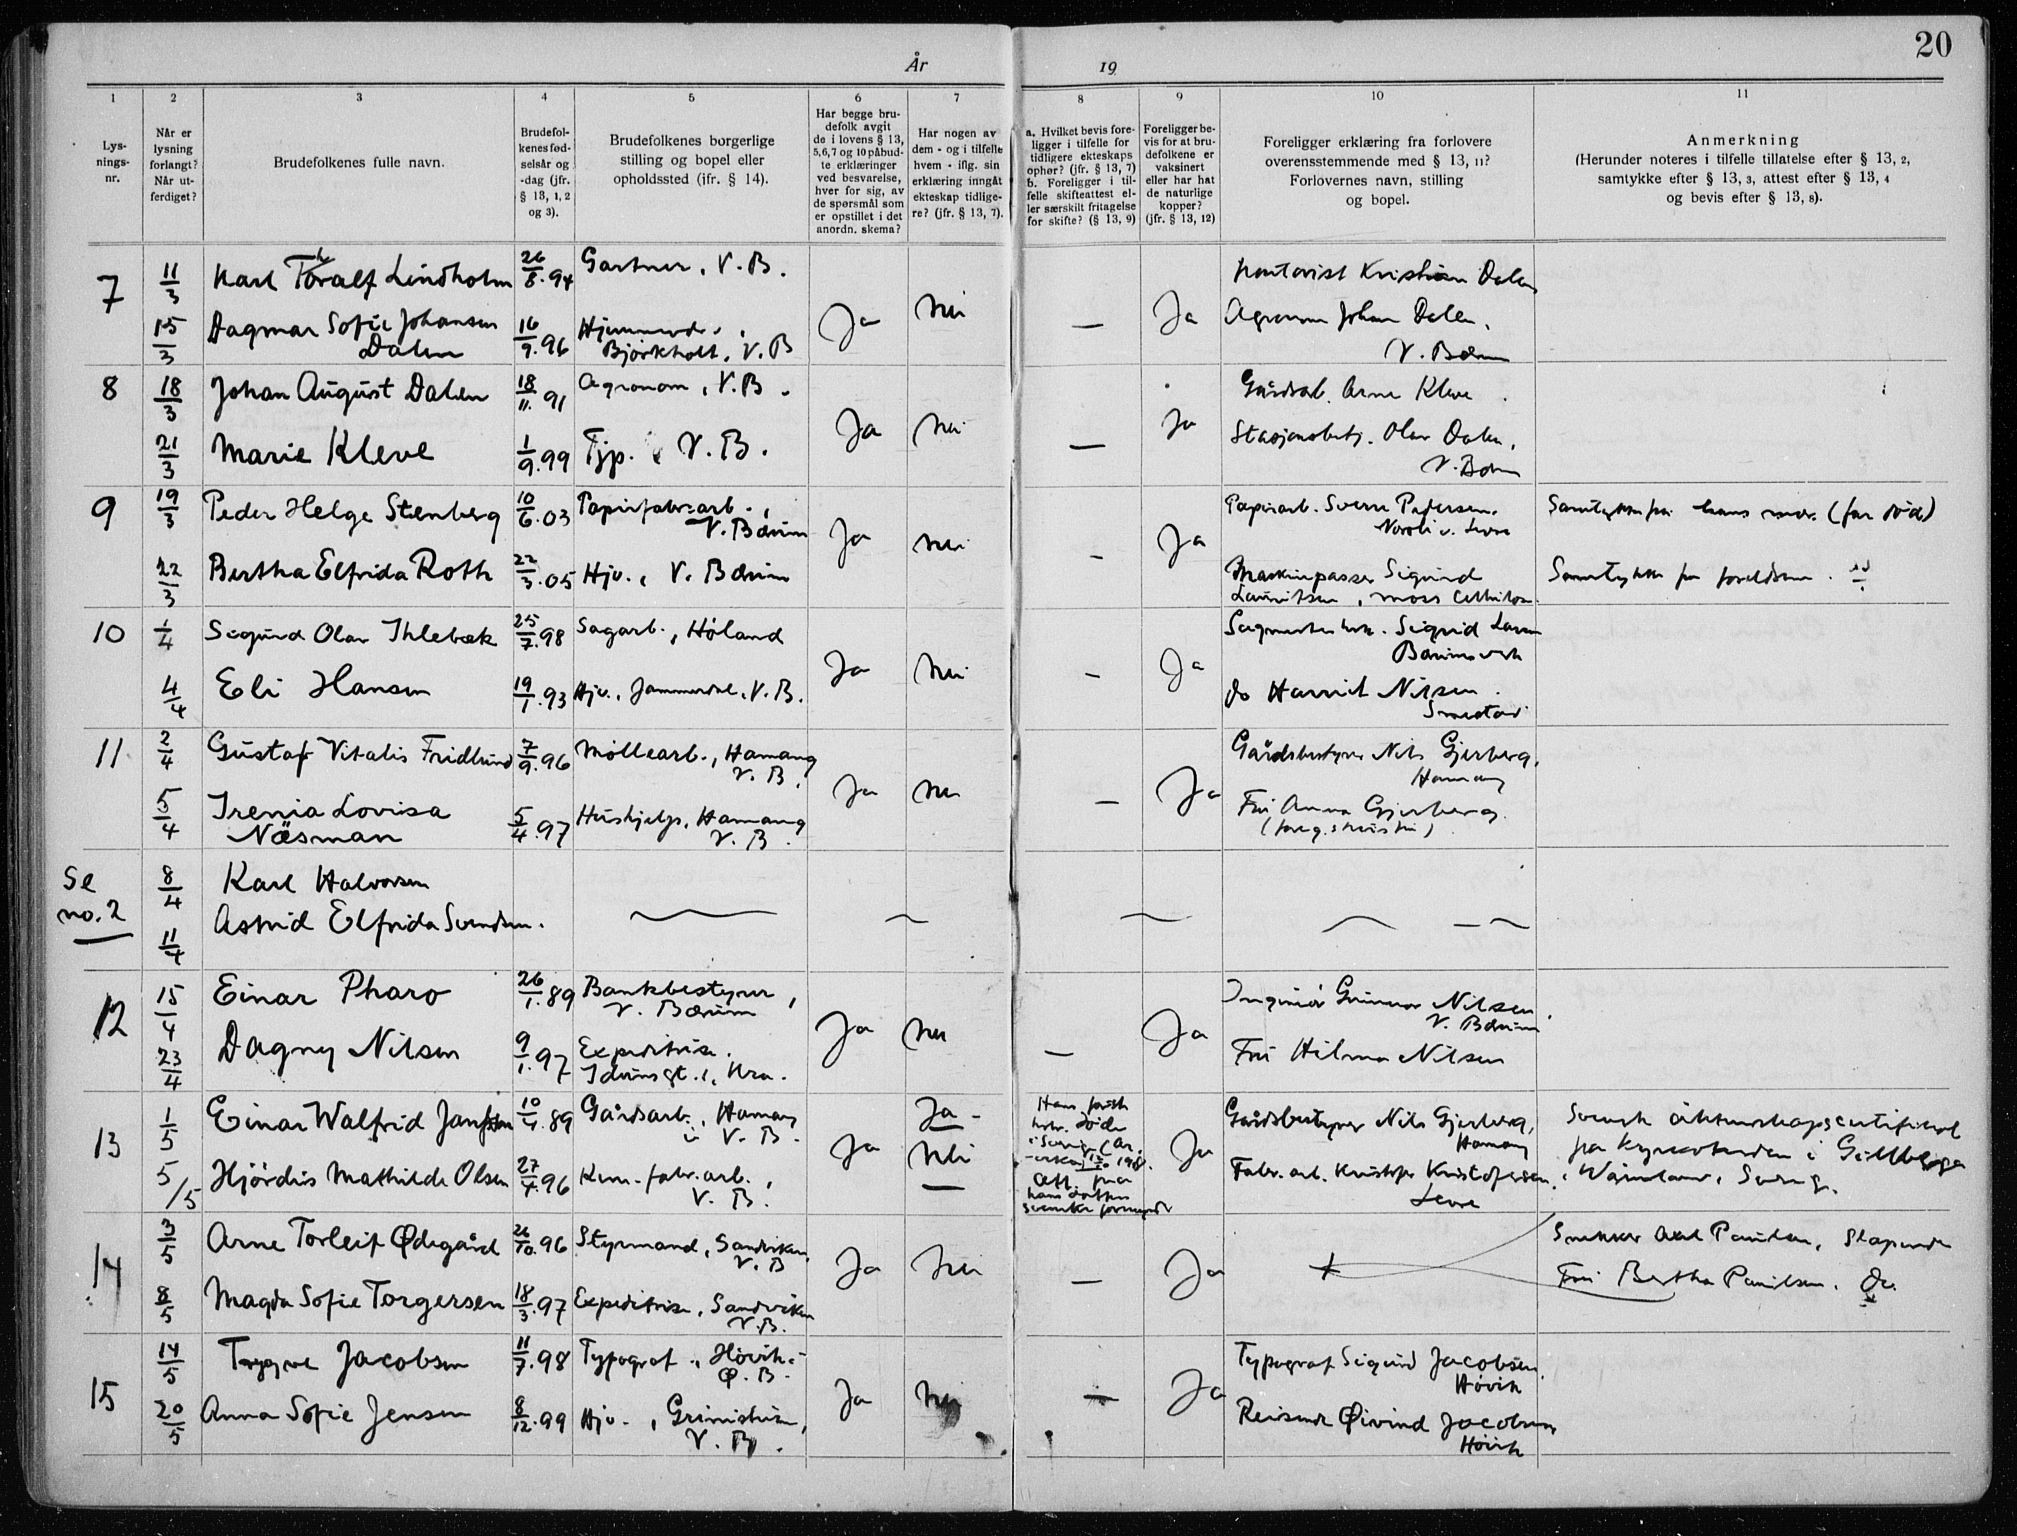 20
År 19
1 2 3 4 5 6 7 8 9 10 11
Lys-
nings-
nr.
Når er
lysning
forlangt?
Når ut-
ferdiget?
Brudefolkenes fulle navn.
Brudefol-
kenes fød-
selsår og
-dag (jfr.
§ 13, 1, 2
og 3).
Brudefolkenes borgerlige
stilling og bopel eller
opholdssted (ifr. § 14).
Har begge bru-
defolk avgit
de i lovens § 13,
5,6,7 og 10 påbud-
te erklæringer
ved besvarelse,
hver for sig, av
de spørsmål som
er opstillet i det
anordn. skema?
Har nogen av
dem - og i tilfelle
hvem - iflg. sin
erklæring inngåt
ekteskap tidlige-
re? (jfr. § 13, 7).
a. Hvilket bevis fore-
ligger i tilfelle for
tidligere ekteskaps
ophør? (jfr. § 13, 7)
b. Foreligger i til-
felle skifteattest el-
ler særskilt fritagelse
for skifte? (§ 13, 9)
Foreligger be-
vis for at bru-
defolkene er
vaksinert
eller har hat
de naturlige
kopper?
(jfr. § 13, 12)
Foreligger erklæring fra forlovere
overensstemmende med § 13, 11?
Forlovernes navn, stilling
og bopel.
Anmerkning
(Herunder noteres i tilfelle tillatelse efter § 13, 2,
samtykke efter § 13, 3, attest efter § 13, 4
og bevis efter § 13, 8).
7 11/3 Karl Thoralf Lindholm 26/8.94 Gartner, V.B.
Kontorist Kristian Dalen
15/3 Dagmar Sofie Johansen Dalen 16/9.96 Bjørkholt, V.B Ja Nei — Ja
Agronom Johan Dalen,
V. Bærum
8 18/3 Johan August Dalen 18/11.91 Agronom, V.B.
Gårdsarb. Arne Kleve
21/3 Marie Kleve 1/9.99 Tjp. V.B. Ja Nei — Ja
Olav Dalen,
V. Bærum
9 19/3 Peder Helge Stenberg 10/6.03 Papirfabr.arb., V. Bærum
Papirarb. Sverre Pedersen.
Samtykke fra hans mor. (far död)
22/3 Bertha Elfrida Roth 22/3.05 Hjv., V. Bærum Ja Nei - Ja
Maskinpasser Sigurd
Lauritsen,
Samtykke fra foreldrene.
10 1/4 Sigurd Olav Ihlebæk 25/7.98 Sagarb., Høland
Sigrid Larsen
Bærums verk
4/4 Eli Hansen 19/1.93 Hjv., Jammerdal, V.B. Ja Nei - Ja
do Harriet Nilsen.
Smestad
11 2/4 Gustaf Vitalis Fridlund 7/9.96 Møllearb., Hamang V.B.
Gårdsbestyrer Nils Gjerberg,
Hamang
5/4 Irenia Lovisa Näsman 5/4.97 Hushjelp, Hamang V.B. Ja Nei — Ja
Fru Anna Gjerberg.
(foreg.s hustru)
Se
no. 2
8/4 Karl Halvorsen
11/4 Astrid Elfrida Svendsen.
12 15/4 Einar Pharo 26/1.89 Bankbestyrer, V. Bærum
Ingeniör Gunnar Nilsen,
V. Bærum
23/4 Dagny Nilsen 9/1.97 Expeditrise. Kra. Ja Nei — Ja
Fru Hilma Nilsen
13 1/5 Einar Walfrid Jansson 10/4.89 Gårdsarb., Hamang V.B. Ja -
Gårdsbestyrer Nils Gjerberg,
Hamang
5/5 Hjördis Mathilde Olsen 27/4.96 Kem. fabr. arb., V.B. Ja Nei Ja
Fabr. arb. Kristoffersen.
på i Gillberga
i Wärmland, Sverig.
14 3/5 Arne Torleif Ødegård 26/10.96 Styrmand, Sandviken V.B
Snekker Axel Paulsen, Slependen
8/5 Magda Sofie Torgersen 18/3.97 Expeditrise, Sandviken V.B. Ja Nei — Ja
Fru Bertha Paulsen. do.
15 14/5 Trygve Jacobsen 11/7.98 Typograf, Høvik Ø.B.
Typograf Sigurd Jacobsen.
Høvik
20/5 Anna Sofie Jensen 8/12.99 Hjv., V.B. Ja Nei — Ja
Reisende Øivind Jacobsen,
Høvik